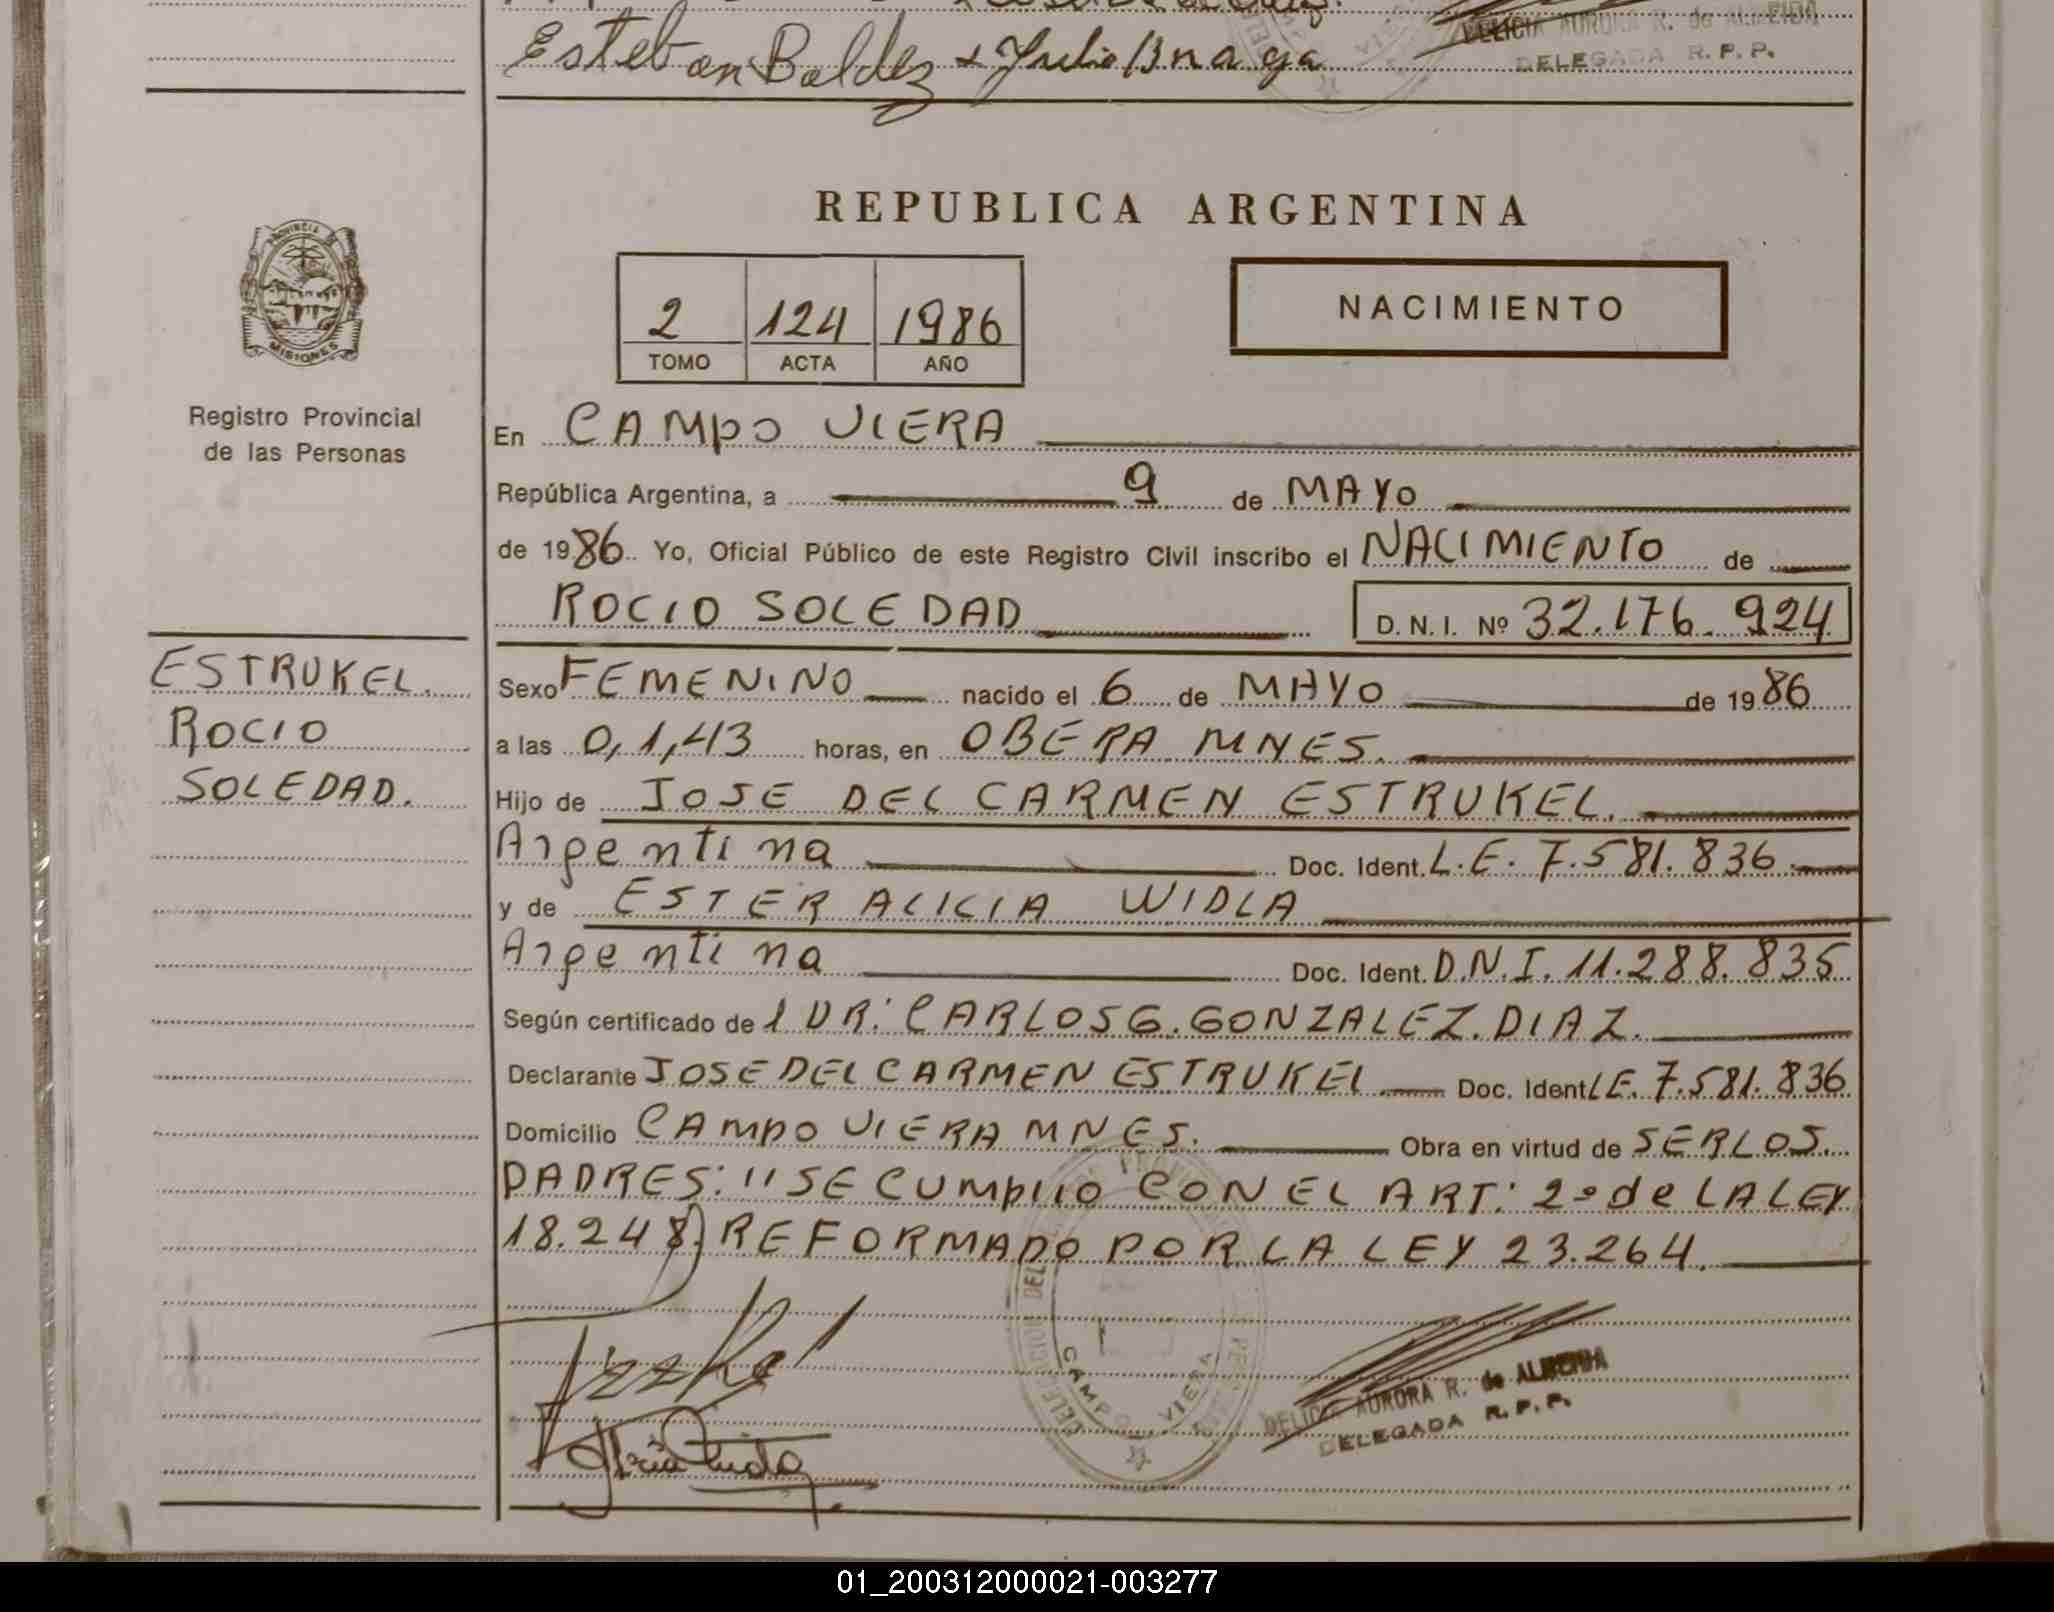 Esteban Baldez + Julio Bnaga
DELICIA AURORA R. de ALMEIDA
DELEGADA R. P. P.
REPUBLICA ARGENTINA
PROVINCIA DE
MISIONES
2 124 1986
TOMO ACTA AÑO
NACIMIENTO
Registro Provincial
de las Personas
En CAMPO VIERA
República Argentina, a 9 de MAYO
de 1986 Yo, Oficial Público de este Registro Civil inscribo el NACIMIENTO de
ROCIO SOLEDAD D. N. I. Nº 32.176.924
ESTRUKEL.
ROCIO
SOLEDAD.
Sexo FEMENINO nacido el 6 de MAYO de 1986
a las 0,1,43 horas, en OBERA MNES.
Hijo de JOSE DEL CARMEN ESTRUKEL.
Argentina Doc. Ident. L.E. 7.581.836.
y de ESTER ALICIA WIDLA
Argentina Doc. Ident. D.N.I. 11.288.835
Según certificado de 1 DR: CARLOS G. GONZALEZ. DIAZ.
Declarante JOSE DEL CARMEN ESTRUKEL Doc. Ident LE. 7.581.836
Domicilio CAMPO VIERA MNES. Obra en virtud de SERLOS.
PADRES: "SE CUMPLIO CON EL ART: 2º de LA LEY
18.248) REFORMADO POR LA LEY 23.264.
CAMPO VIERA
DELICIA AURORA R. de ALMEIDA
DELEGADA R. P. P.
01_200312000021-003277